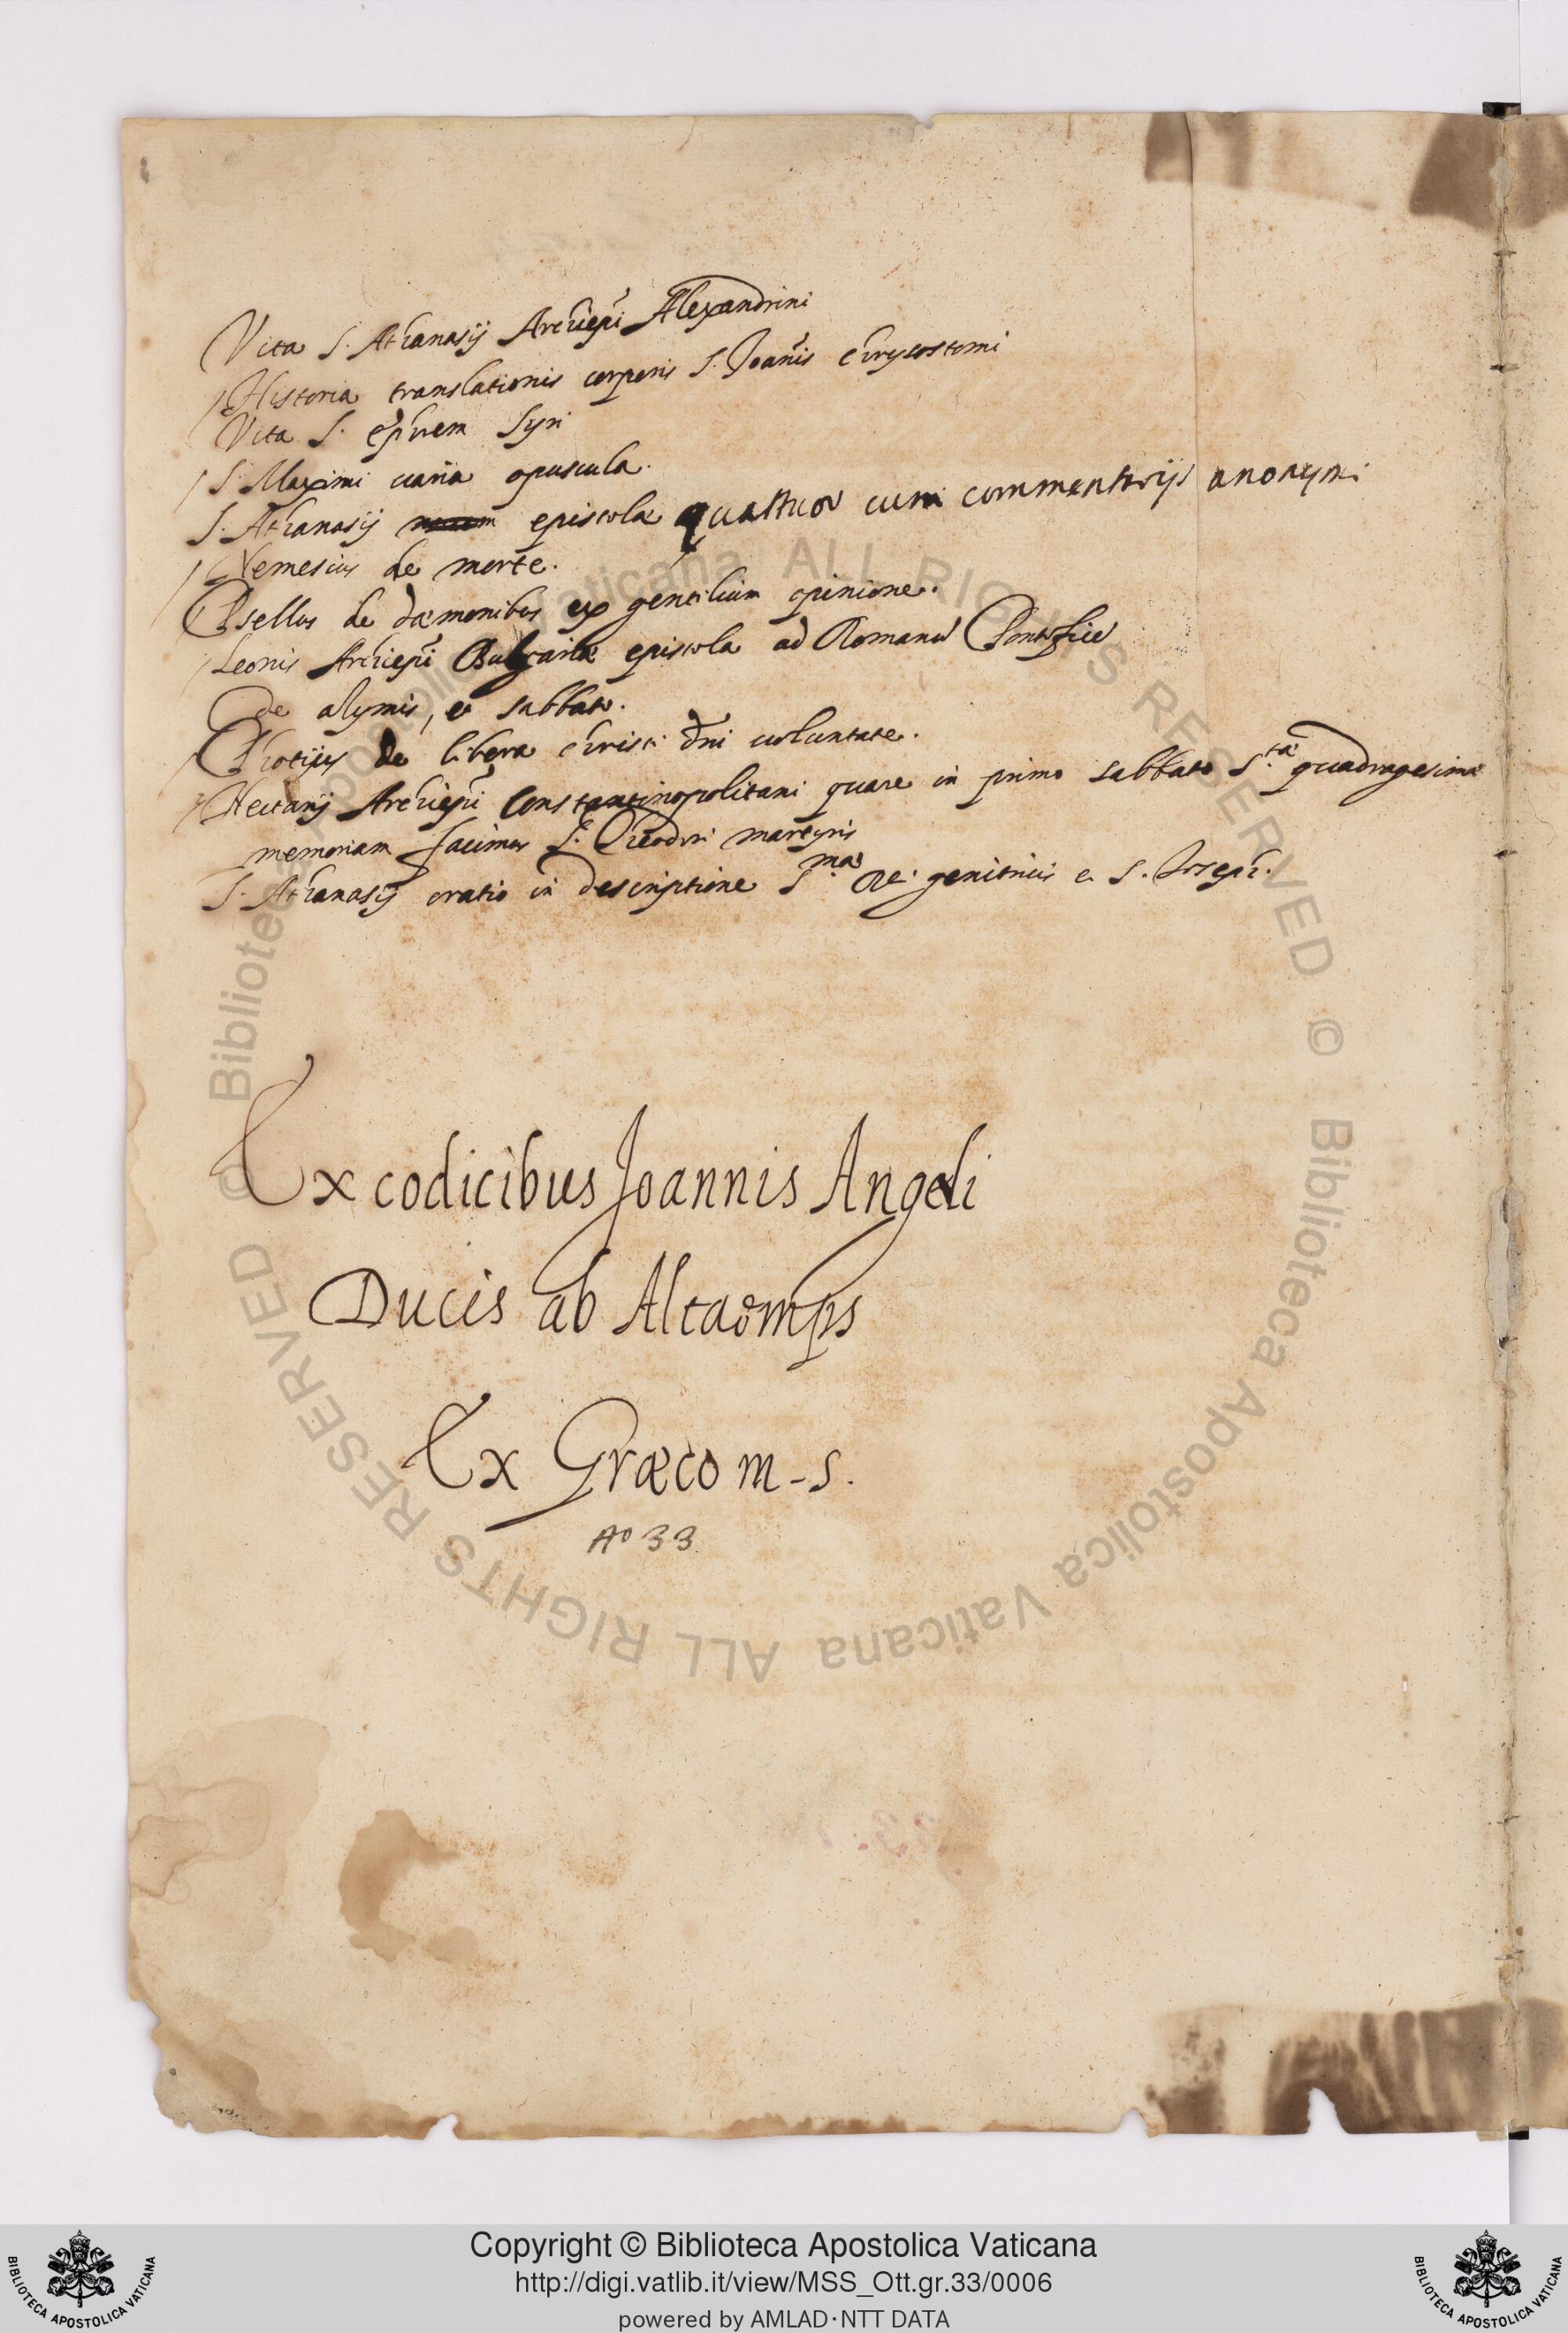 Vita S. Athanasij Archiepi Alexandrini
Historia translationis corporis S. Joanis Chrysostomi
Vita S. ephrem Syri
S. Maximi varia opuscula.
S. Athanasij epistolæ quattuor cum commentarijs anonymi
Nemesius de morte.
Psellus de dæmonibus ex gentilium opinione.
Leonis Archiepi Bulgariæ epistola ad Romanū Pontificē
de azymis, et sabbato.
Photius de libera christi dni voluntate.
Nectarij Archiepi Constantinopolitani quare in primo sabbato S.tæ quadragesimæ
memoriam facimus S. Theodori martyris
S. Athanasij oratio in descriptione S.mæ genitricis et S. Joseph.
Ex codicibus Joannis Angeli
Ducis ab Altaemps
Ex Græco m-s.
Ao 33
© Biblioteca Apostolica Vaticana ALL RIGHTS RESERVED
© Biblioteca Apostolica Vaticana ALL RIGHTS RESERVED
Copyright © Biblioteca Apostolica Vaticana
http://digi.vatlib.it/view/MSS_Ott.gr.33/0006
powered by AMLAD·NTT DATA
BIBLIOTECA APOSTOLICA VATICANA
BIBLIOTECA APOSTOLICA VATICANA